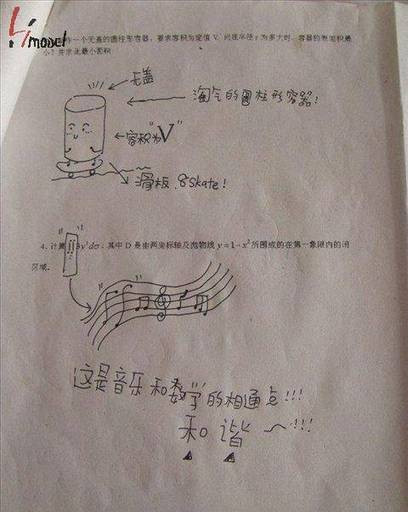 model
作一个无盖的圆柱形容器，要求容积为定值 V 问底半径 r 为多大时，容器的表面积最
小？并求此最小面积
无盖
淘气的圆柱形容器！
容积为"V"
滑板 Skate！
4. 计算 y²dσ，其中 D 是由两坐标轴及抛物线 y＝1－x² 所围成的在第一象限内的闭
区域．
这是音乐和数学的相通点!!!
和谐～!!!